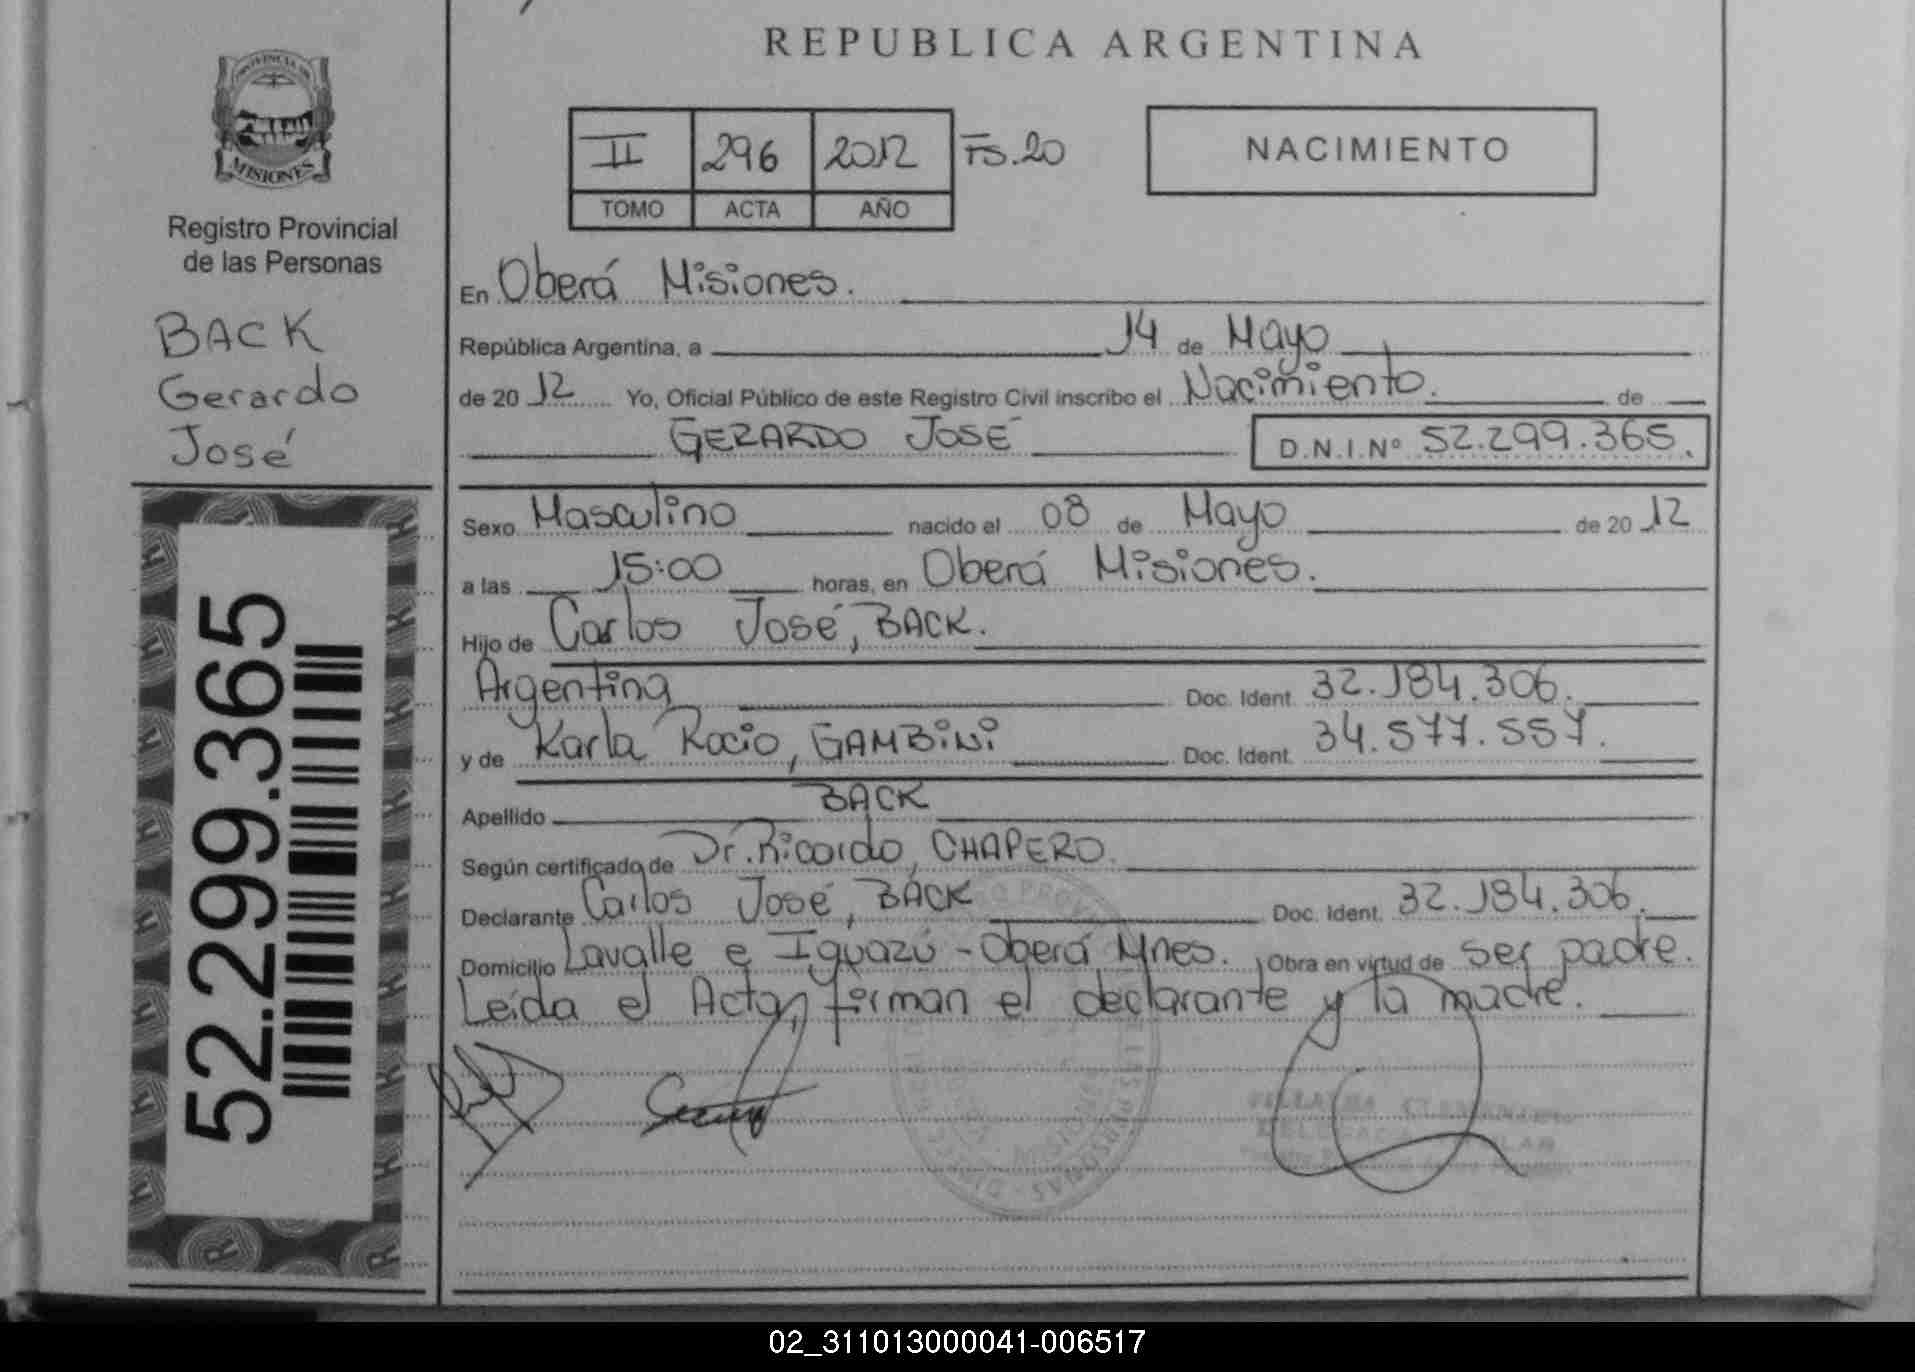 REPUBLICA ARGENTINA
PROVINCIA DE
MISIONES
Registro Provincial
de las Personas
BACK
Gerardo
José
52.299.365
II 296 2012 FS.20
TOMO ACTA AÑO
NACIMIENTO
En Oberá Misiones.
República Argentina, a 14 de Mayo
de 2012 Yo, Oficial Público de este Registro Civil inscribo el Nacimiento. de
GERARDO JOSÉ D.N.I.Nº 52.299.365.
Sexo Masculino nacido el 08 de Mayo de 2012
a las 15:00 horas, en Oberá Misiones.
Hijo de Carlos José, BACK.
Argentina Doc. Ident. 32.184.306.
y de Karla Rocio, GAMBiNi Doc. Ident. 34.577.557.
Apellido BACK
Según certificado de Dr. Ricardo, CHAPERO.
Declarante Carlos José, BACK Doc. Ident. 32.184.306.
Domicilio Lavalle e Iguazú - Oberá Mnes. Obra en virtud de ser padre.
Leída el Acta, firman el declarante y la madre.
02_311013000041-006517